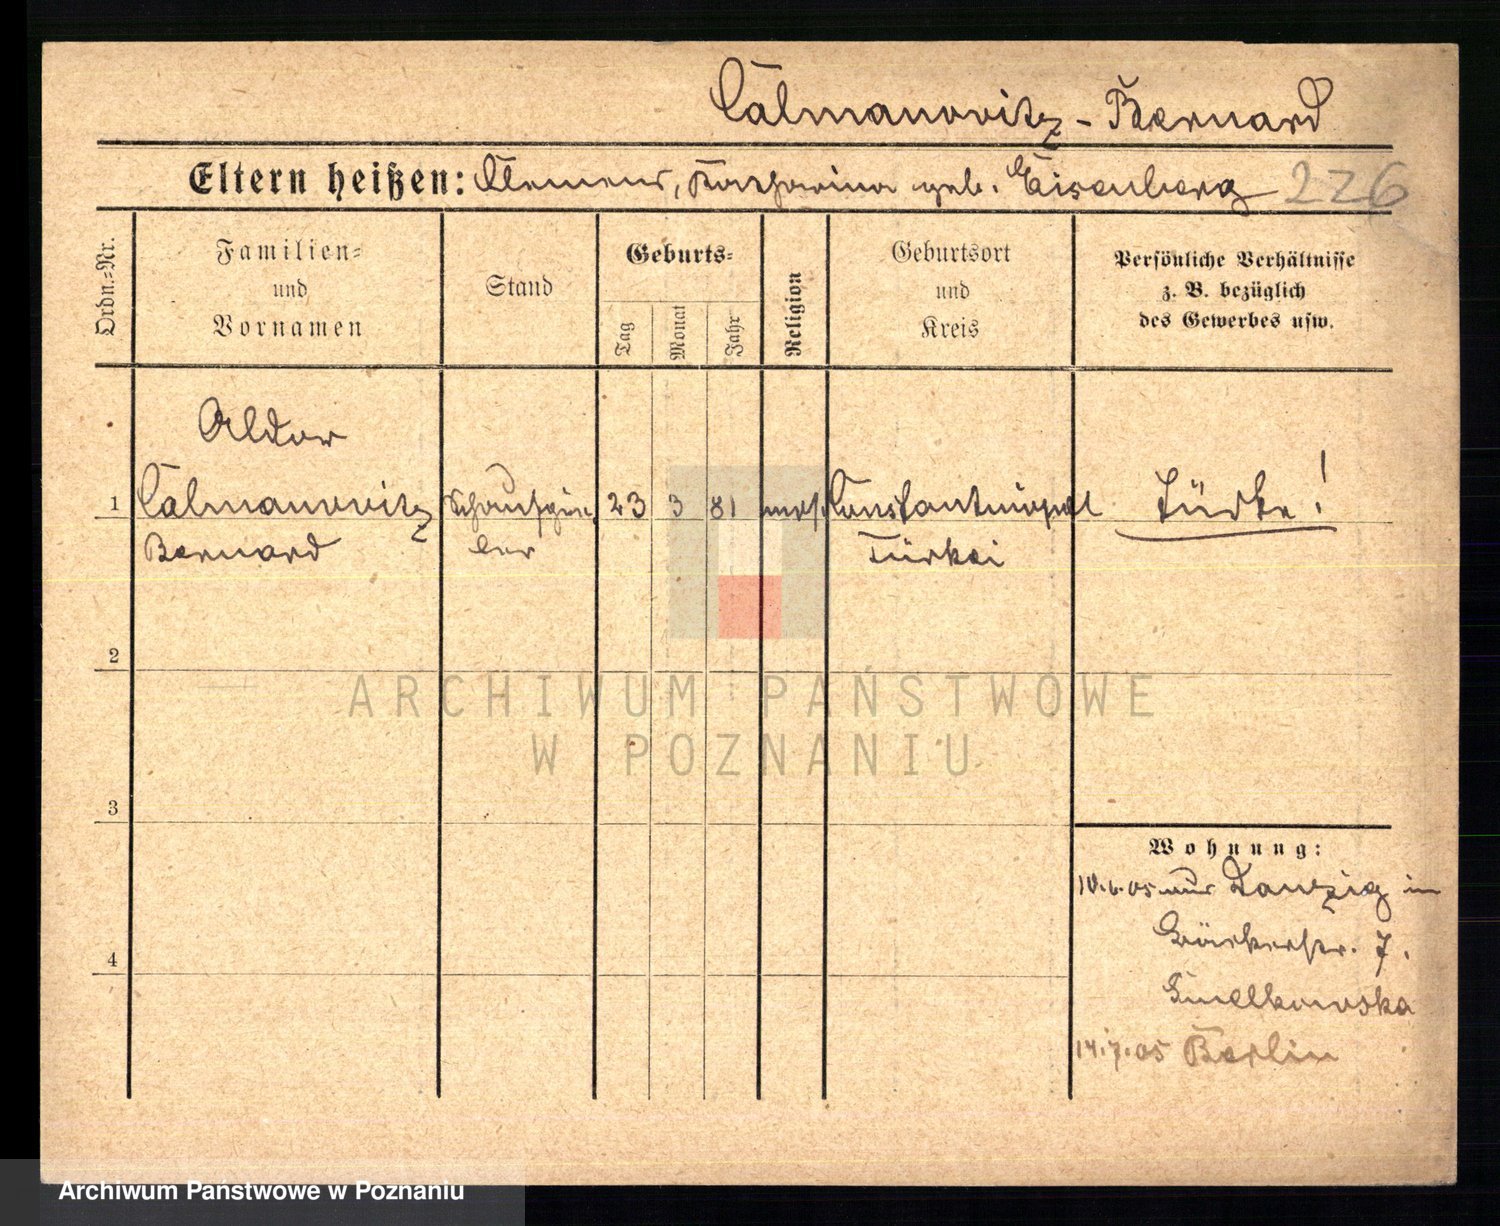 Calmanovitz - Bernard
Eltern heißen: Clemens, Katharina geb. Eisenberg 226
Ordn.=Nr.
Familien=
und
Vornamen
Stand
Geburts=
Tag
Monat
Jahr
Religion
Geburtsort
und
Kreis
Persönliche Verhältnisse
z. B. bezüglich
des Gewerbes usw.
Aldor
1 Calmanovitz Schauspie 23 3 81 mos. Constantinopel Türke!
Bernard ler Türkei
2
ARCHIWUM PAŃSTWOWE
W POZNANIU
3
Wohnung:
10.6.05 aus Danzig in
Bäckerstr. 7.
4
14.7.05 Berlin
Archiwum Państwowe w Poznaniu